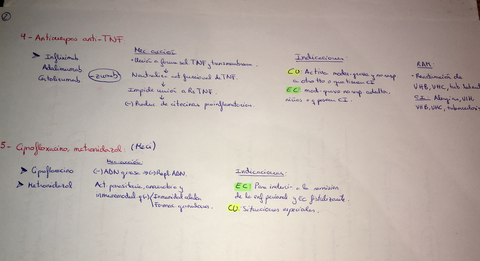 ②
4- Anticuerpos anti-TNF
Mec acción
Infliximab
Adalimumab
Certolizumab
-zumab
• Unión a forma sol TNF y transmembrana.
Neutraliza act funcional de TNF.
Impide unión a Rc TNF.
(-) Produc de citocinas proinflamatorias.
Indicaciones
CU: Activa mod-grave y no resp
a otro tto o que tienen CI
EC: mod-grave no resp adultos,
niños + 9 prese CI.
RAM:
- Reactivación de
VHB, VHC, tub
VHB, VHC, tuberculosis
5- Ciprofloxacino, metronidazol. (Mec)
Mec acción
Ciprofloxacino
(-) ADN girasa → (-) Repl ADN.
Metronidazol
Act parasitaria, anaerobia y
inmunomodul q (-) Inmunidad celular
Formac granulomas.
Indicaciones:
EC: Para inducir a la remisión
de la enf perianal y EC fistulizante.
CU: Situaciones especiales.